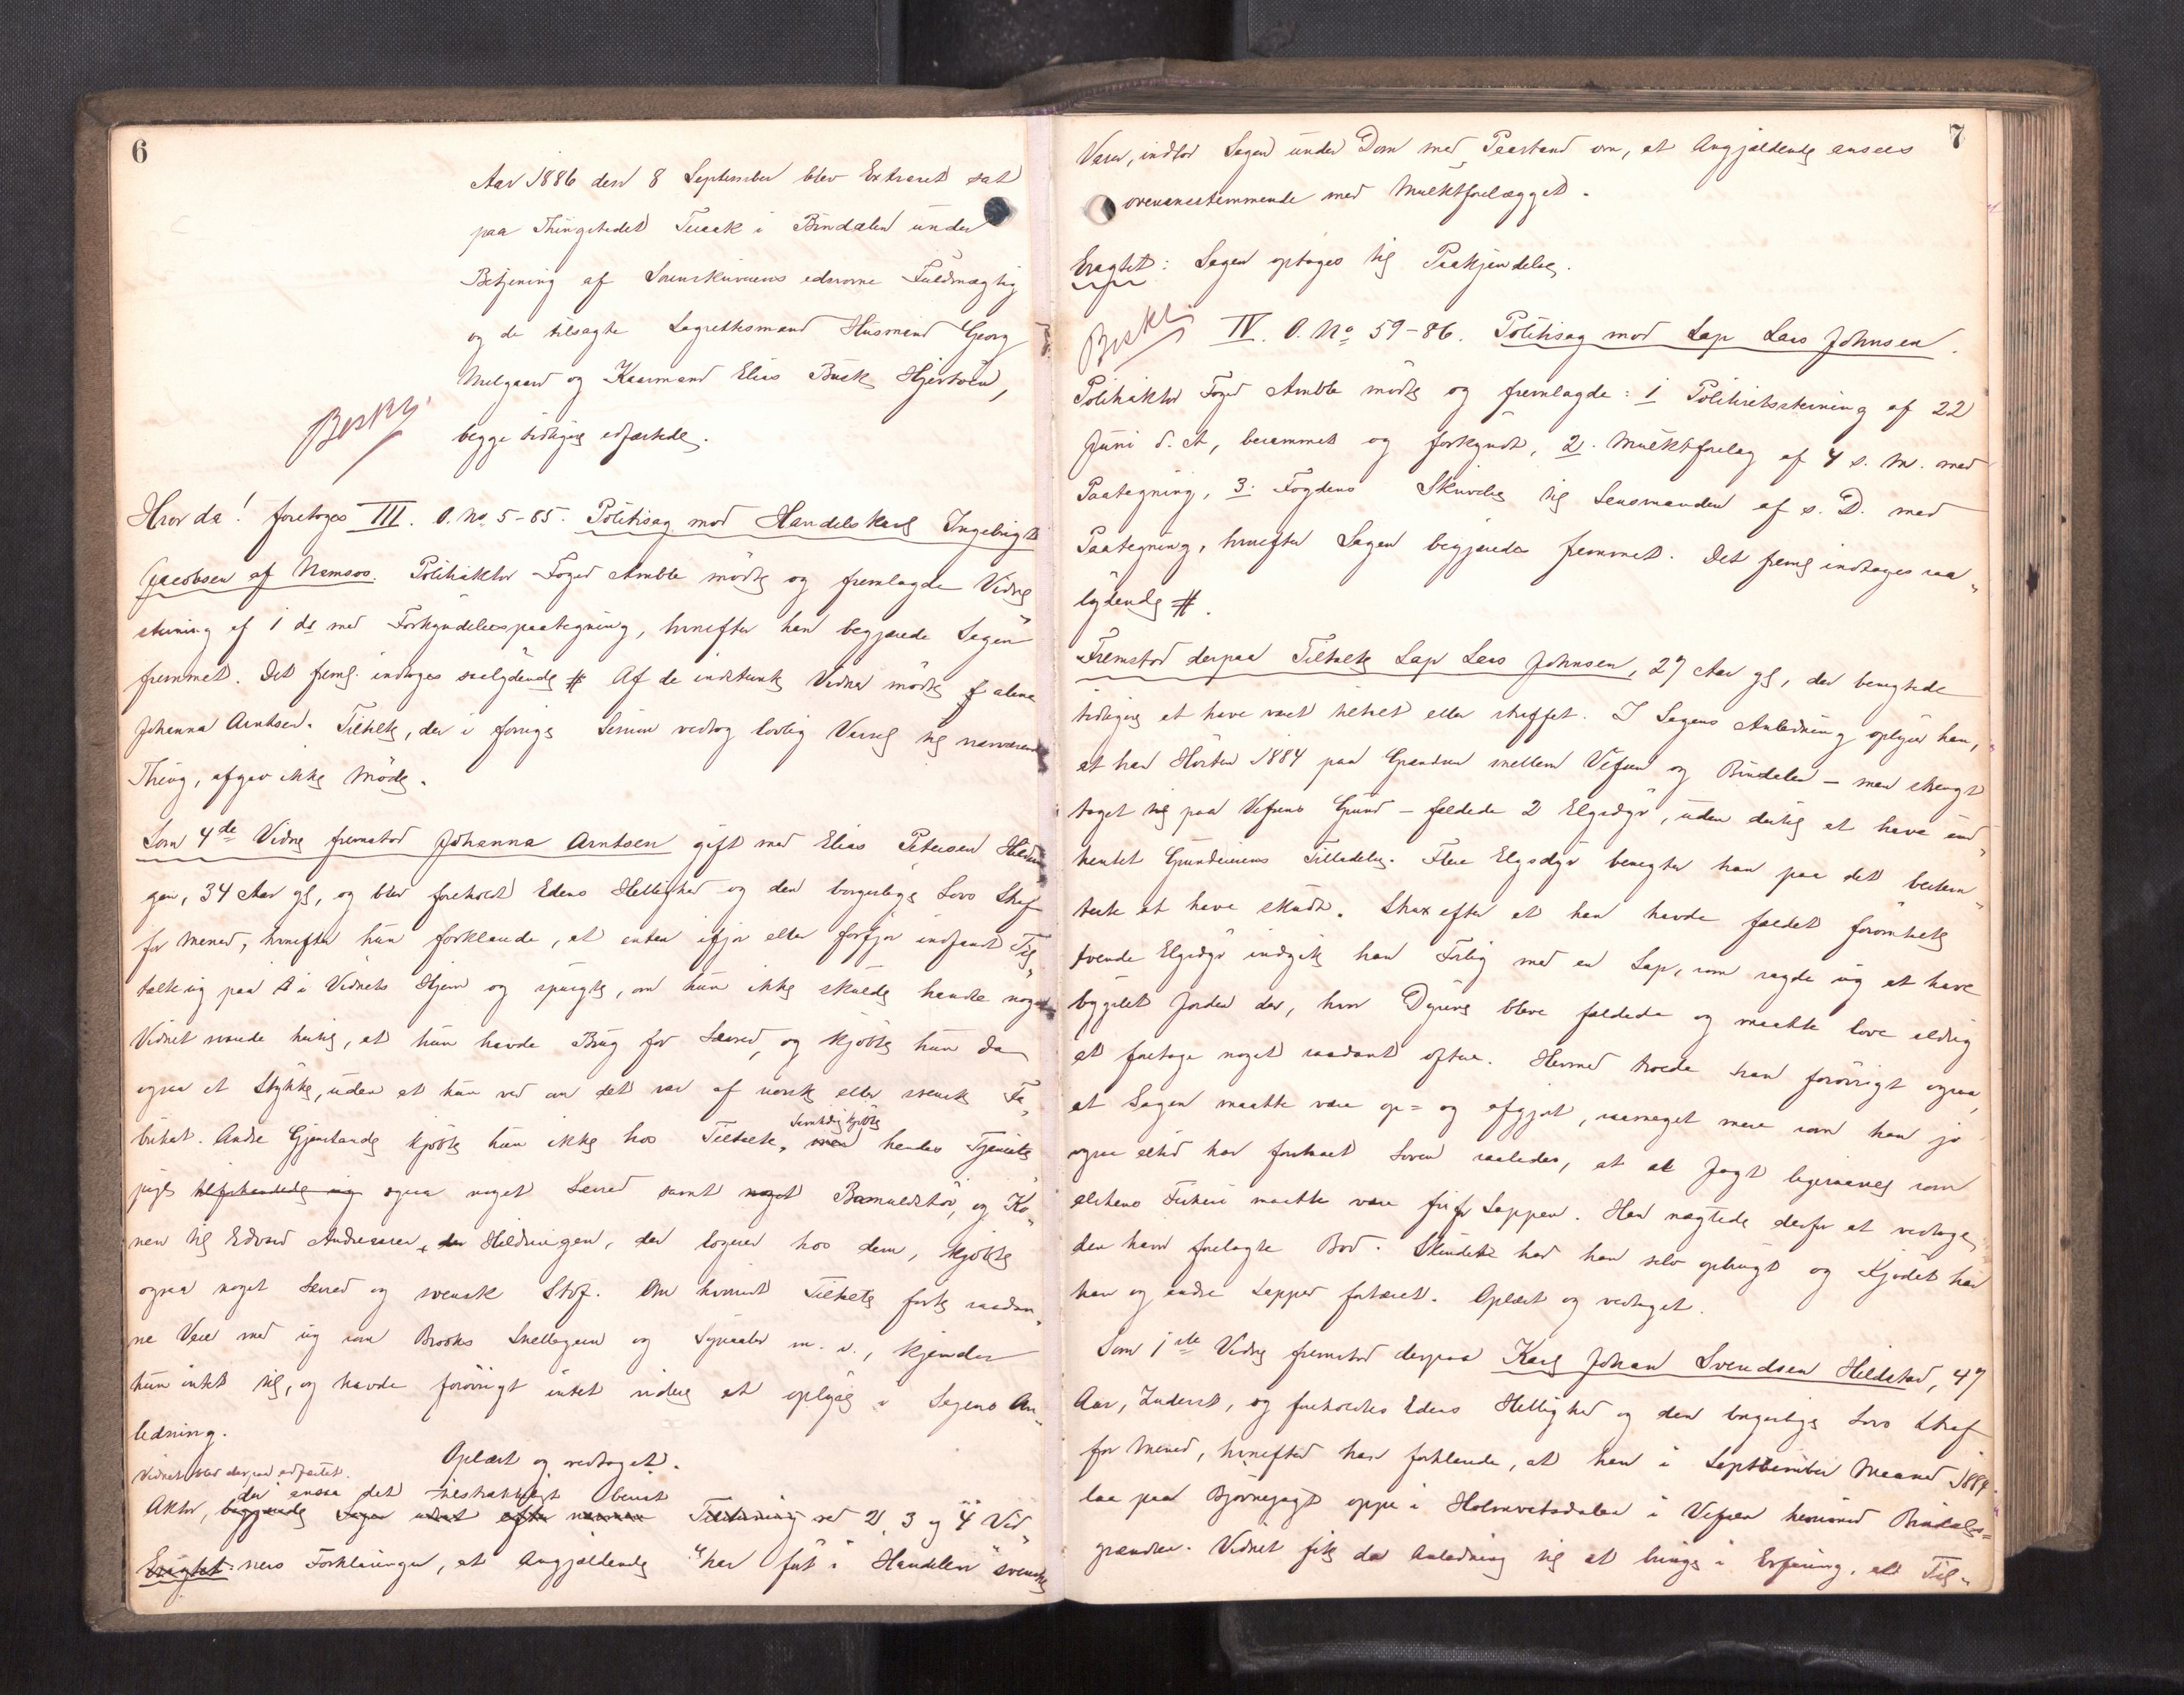 6
Aar 1886 den 8 September blev Extraret sat
paa Thingstedet Terraak i Bindalen under
Betjening af Sorenskriverens edsvorne Fuldmægtig
og de tilsagte Lagrettesmænd Husmand Georg
Melgaard og Kaarmand Elias Busk Hjertøen,
begge tidligere edfæstede.
Hvor da! foretoges III. O. No 5-85. Politisag mod Handelskarl Ingebrigt
Jacobsen af Namsos. Politiaktor Foged Amble mødte og fremlagde Vidne
stevning af 1 ds med Forkyndelsespaategning, hvorefter han begjærede Sagen
fremmet. Det freml. indtages saalydende # Af de indstevnte Vidner mødte alene
Johanna Arntsen. Tiltalte, der i forrige Session vedtog lovlig Varsel til nærværende
Thing, afgav ikke Møde.
Som 4de Vidne fremstod Johanna Arntsen gift med Elias Petersen Hildrin
gen, 34 Aar gl, og blev foreholdt Edens Hellighed og den borgerlige Lovs Straf
for Mened, hvorefter hun forklarede, at enten ifjor eller forfjor indfandt Til„
talte sig paa i Vidnets Hjem og spurgte, om hun ikke skulde handle noget
Vidnet svarede hertil, at hun havde Brug for Lærred, og kjøbte hun da
ogsaa et Stykke, uden at hun ved om det var af norsk eller svensk Fa„
brikat. Andre Gjenstande kjøbte hun ikke hos Tiltalte, men hendes Tjeneste
Samtidig kjøbte
pige tilforhandlede sig ogsaa noget Lærred samt noget Bomuldstøi, og Ko„
nen til Edvard Andreassen, der Hildringen, der logerer hos dem, kjøbte
ogsaa noget Lærred og svensk Stof. Om hvorvidt Tiltalte førte saadan„
ne Varer med sig som Brooks Snellegarn og Synaaler m. v., kjender
hun intet til, og havde forøvrigt intet videre at oplyse i Sagens An„
ledning.
Oplæst og vedtaget.
Vidnet blev derpaa edfæstet.
der ansaa det tilstrækkeligt bevist
Aktor, begjærede Sagen udsat efter ved 2, 3 og 4 Vid„
Eragtet: ners Forklaringer, at Angjældende "harført i Handelen" svenske
Beskr.
7
Varer, indlod Sagen under Dom med Paastand om, at Angjældende ansees
overensstemmende med Mulktforelægget.
Eragtet: Sagen optages til Paakjendelse.
Beskr.
IV. O. No 59-86. Politisag mod Lap Lars Johnsen.
Politiaktor Foged Amble mødte og fremlagde: 1 Politiretsstevning af 22
Juni d. A, berammet og forkyndt, 2. Mulktforelæg af 4 s. M. med
Paategning, 3. Fogdens Skrivelse til Lensmanden af s. D. med
Paategning, hvorefter Sagen begjæredes fremmet. Det freml indtages saa„
lydende #.
Fremstod derpaa Tiltalte Lap Lars Johnsen, 27 Aar gl, der benegtede
tidligere at have været tiltalt eller straffet. I Sagens Anledning oplyser han,
at han Høsten 1884 paa Grændsen mellem Vefsen og Bindalen – men strengt
taget til paa Vefsens Grund – fældede 2 Elgsdyr, uden dertil at have ind„
hentet Grundeierens Tilladelse. Flere Elgsdyr benegter han paa det bestem„
teste at have skudt. Strax efter at han havde fældet føromtalte
tvende Elgsdyr indgik han Forlig med en Lap, som sagde sig at have
bygslet Jorden der, hvor Dyrene bleve fældede og maatte love aldrig
at foretage noget saadant oftere. Hermed troede han forøvrigt ogsaa
at Sagen maatte være op= og afgjort, saameget mere som han jo
ogsaa altid har forstaaet Loven saaledes, at al Jagt ligesaavel som
alskens Fiskeri maatte være fri for Lappen. Han nægtede derfor at vedtage
den ham forelagte Bod. Skindet har han selv opbrugt og Kjødet har
han og andre Lapper fortæret. Oplæst og vedtaget.
Som 1ste Vidne fremstod derpaa Karl Johan Svendsen Hildstad, 47
Aar, Inderst, og foreholdtes Edens Hellighed og den borgerlige Lovs Straf
for Mened, hvorefter han forklarede, at han i September Maaned 1884
laa paa Bjørnejagt oppe i Holmvatsdalen i Vefsen henimod Bindals=
grændsen. Vidnet fik da Anledning til at bringe i Erfaring, at Til„